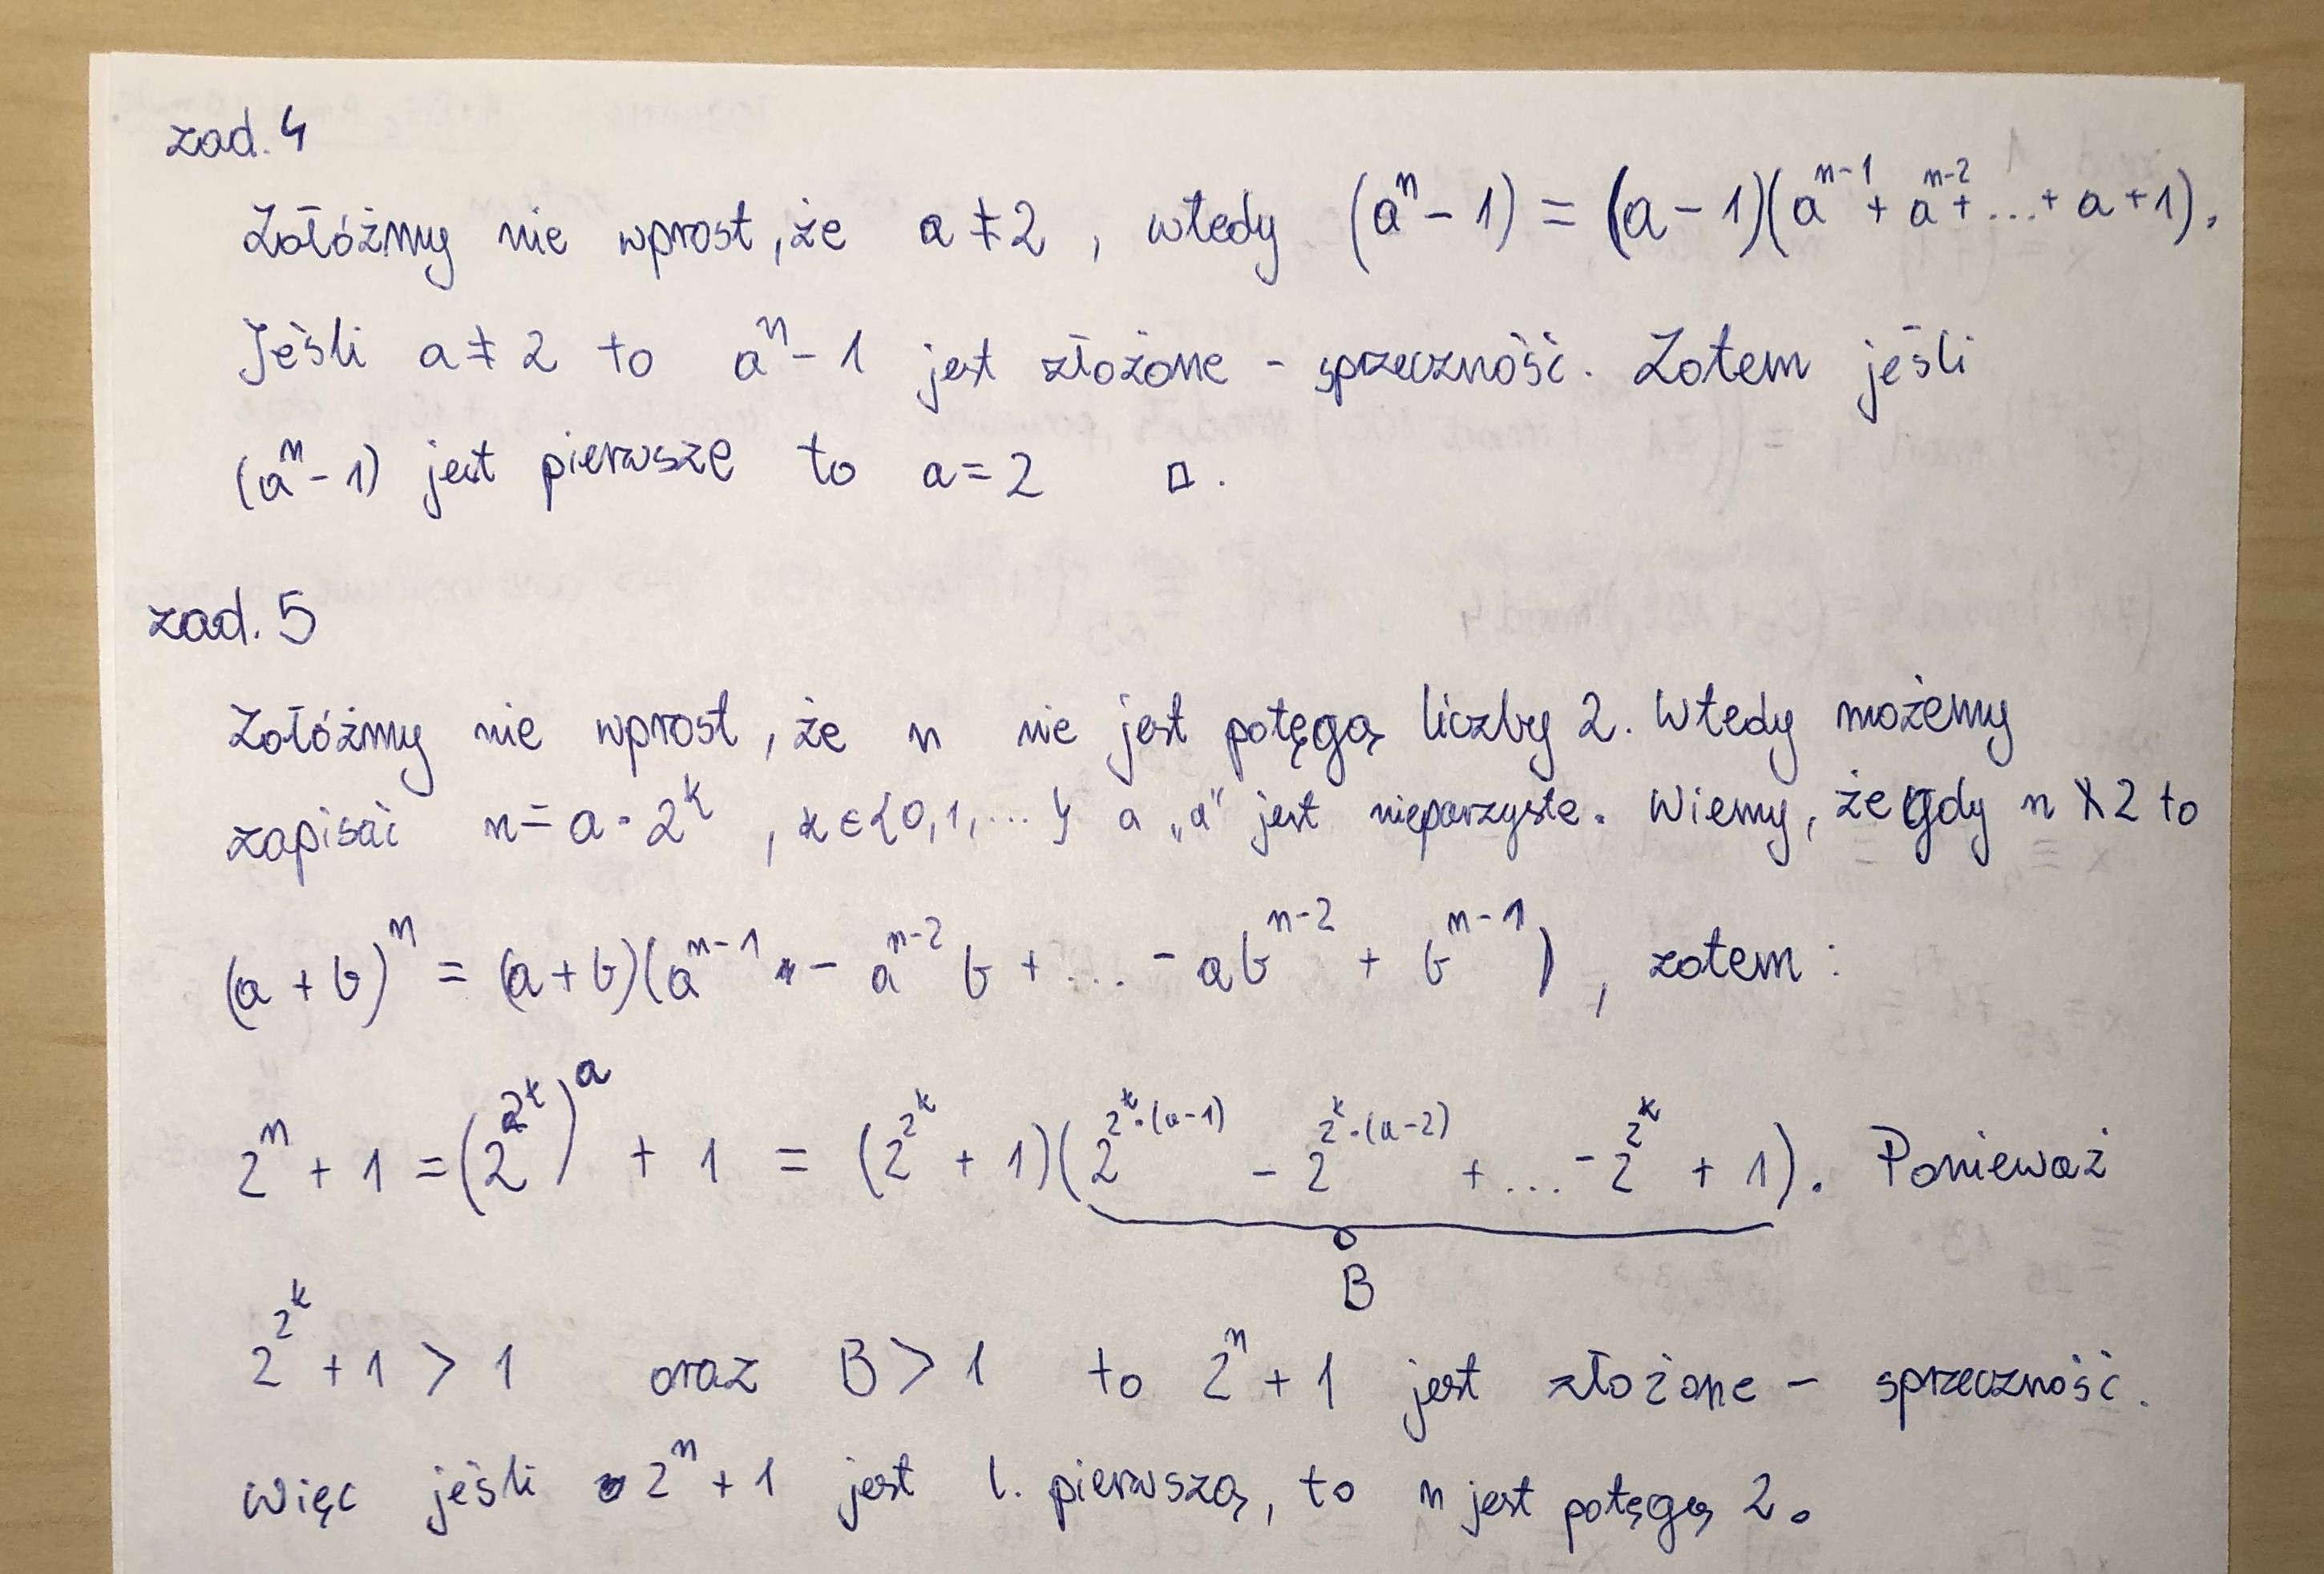 zad. 4
Załóżmy nie wprost, że a ≠ 2, wtedy (aⁿ - 1) = (a - 1)(aⁿ⁻¹ + aⁿ⁻² + ... + a + 1).
Jeśli a ≠ 2 to aⁿ - 1 jest złożone - sprzeczność. Zatem jeśli
(aⁿ - 1) jest pierwsze to a = 2 □.
zad. 5
Załóżmy nie wprost, że n nie jest potęgą liczby 2. Wtedy możemy
zapisać n = a · 2^k, k ∈ {0, 1, ... } a „a" jest nieparzyste. Wiemy, że gdy n ∤ 2 to
(a + b)^n = (a + b)(a^{n-1} - a^{n-2} b + ... - a b^{n-2} + b^{n-1}), zatem:
2^n + 1 = (2^{2^k})^a + 1 = (2^{2^k} + 1)(2^{2^k·(a-1)} - 2^{2^k·(a-2)} + ... - 2^{2^k} + 1). Ponieważ
B
2^{2^k} + 1 > 1 oraz B > 1 to 2^n + 1 jest złożone - sprzeczność.
Więc jeśli 2^n + 1 jest l. pierwszą, to n jest potęgą 2.